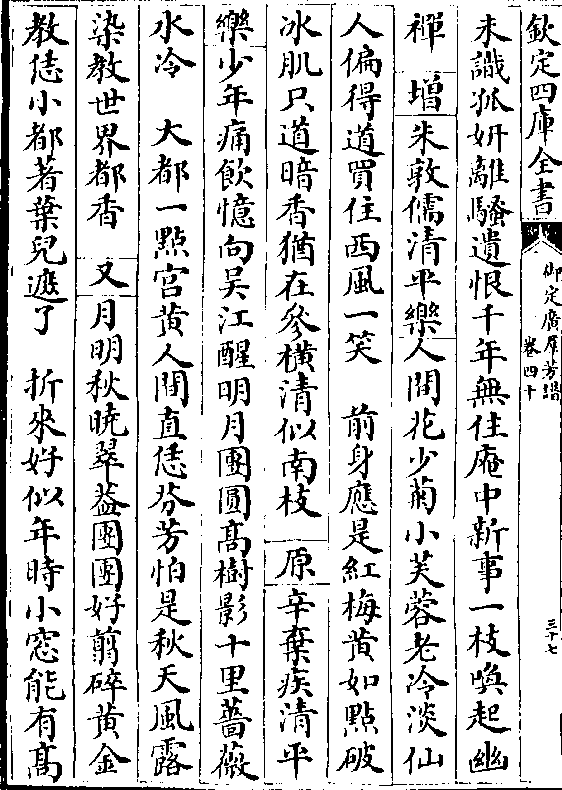 欽定四庫全書
御定廣羣芳譜
卷四十
三十七
未識孤妍離騷遺恨千年無住庵中新事一枝喚起幽
禪　增　朱敦儒清平樂人間花少菊小芙蓉老冷淡仙
人偏得道買住西風一笑　前身應是紅梅黄如㸃破
冰肌只道暗香猶在參橫清似南枝　原　辛棄疾清平
樂少年痛飲憶向吳江醒明月團圓髙樹影十里薔薇
水冷　大都一㸃宮黄人間直恁芬芳怕是秋天風露
染教世界都香　又　月明秋曉翠葢團團好剪碎黄金
教恁小都著葉兒遮了　折來好似年時小窓能有髙